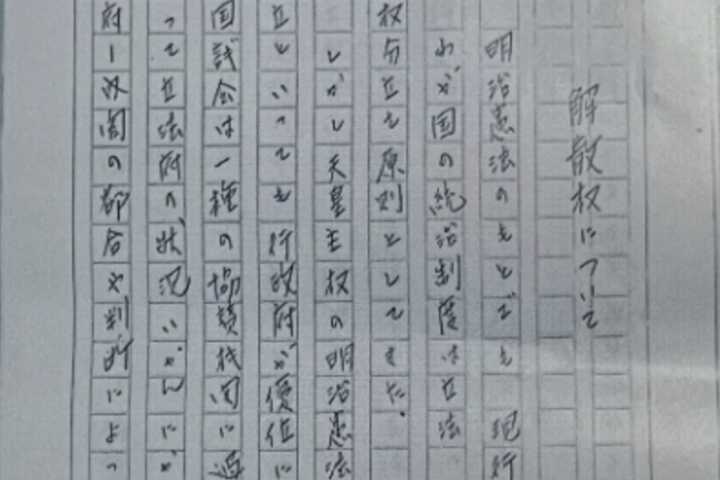 解散権について
明治憲法のもとでも 現行
わが国の統治制度は立法
権分立を原則としてきた。
しかし天皇主権の明治憲法
立といっても行政府が優位に
国議会は一種の協賛機関に過
って立法府の状況いかんにか
府ー内閣の都合や判断によっ